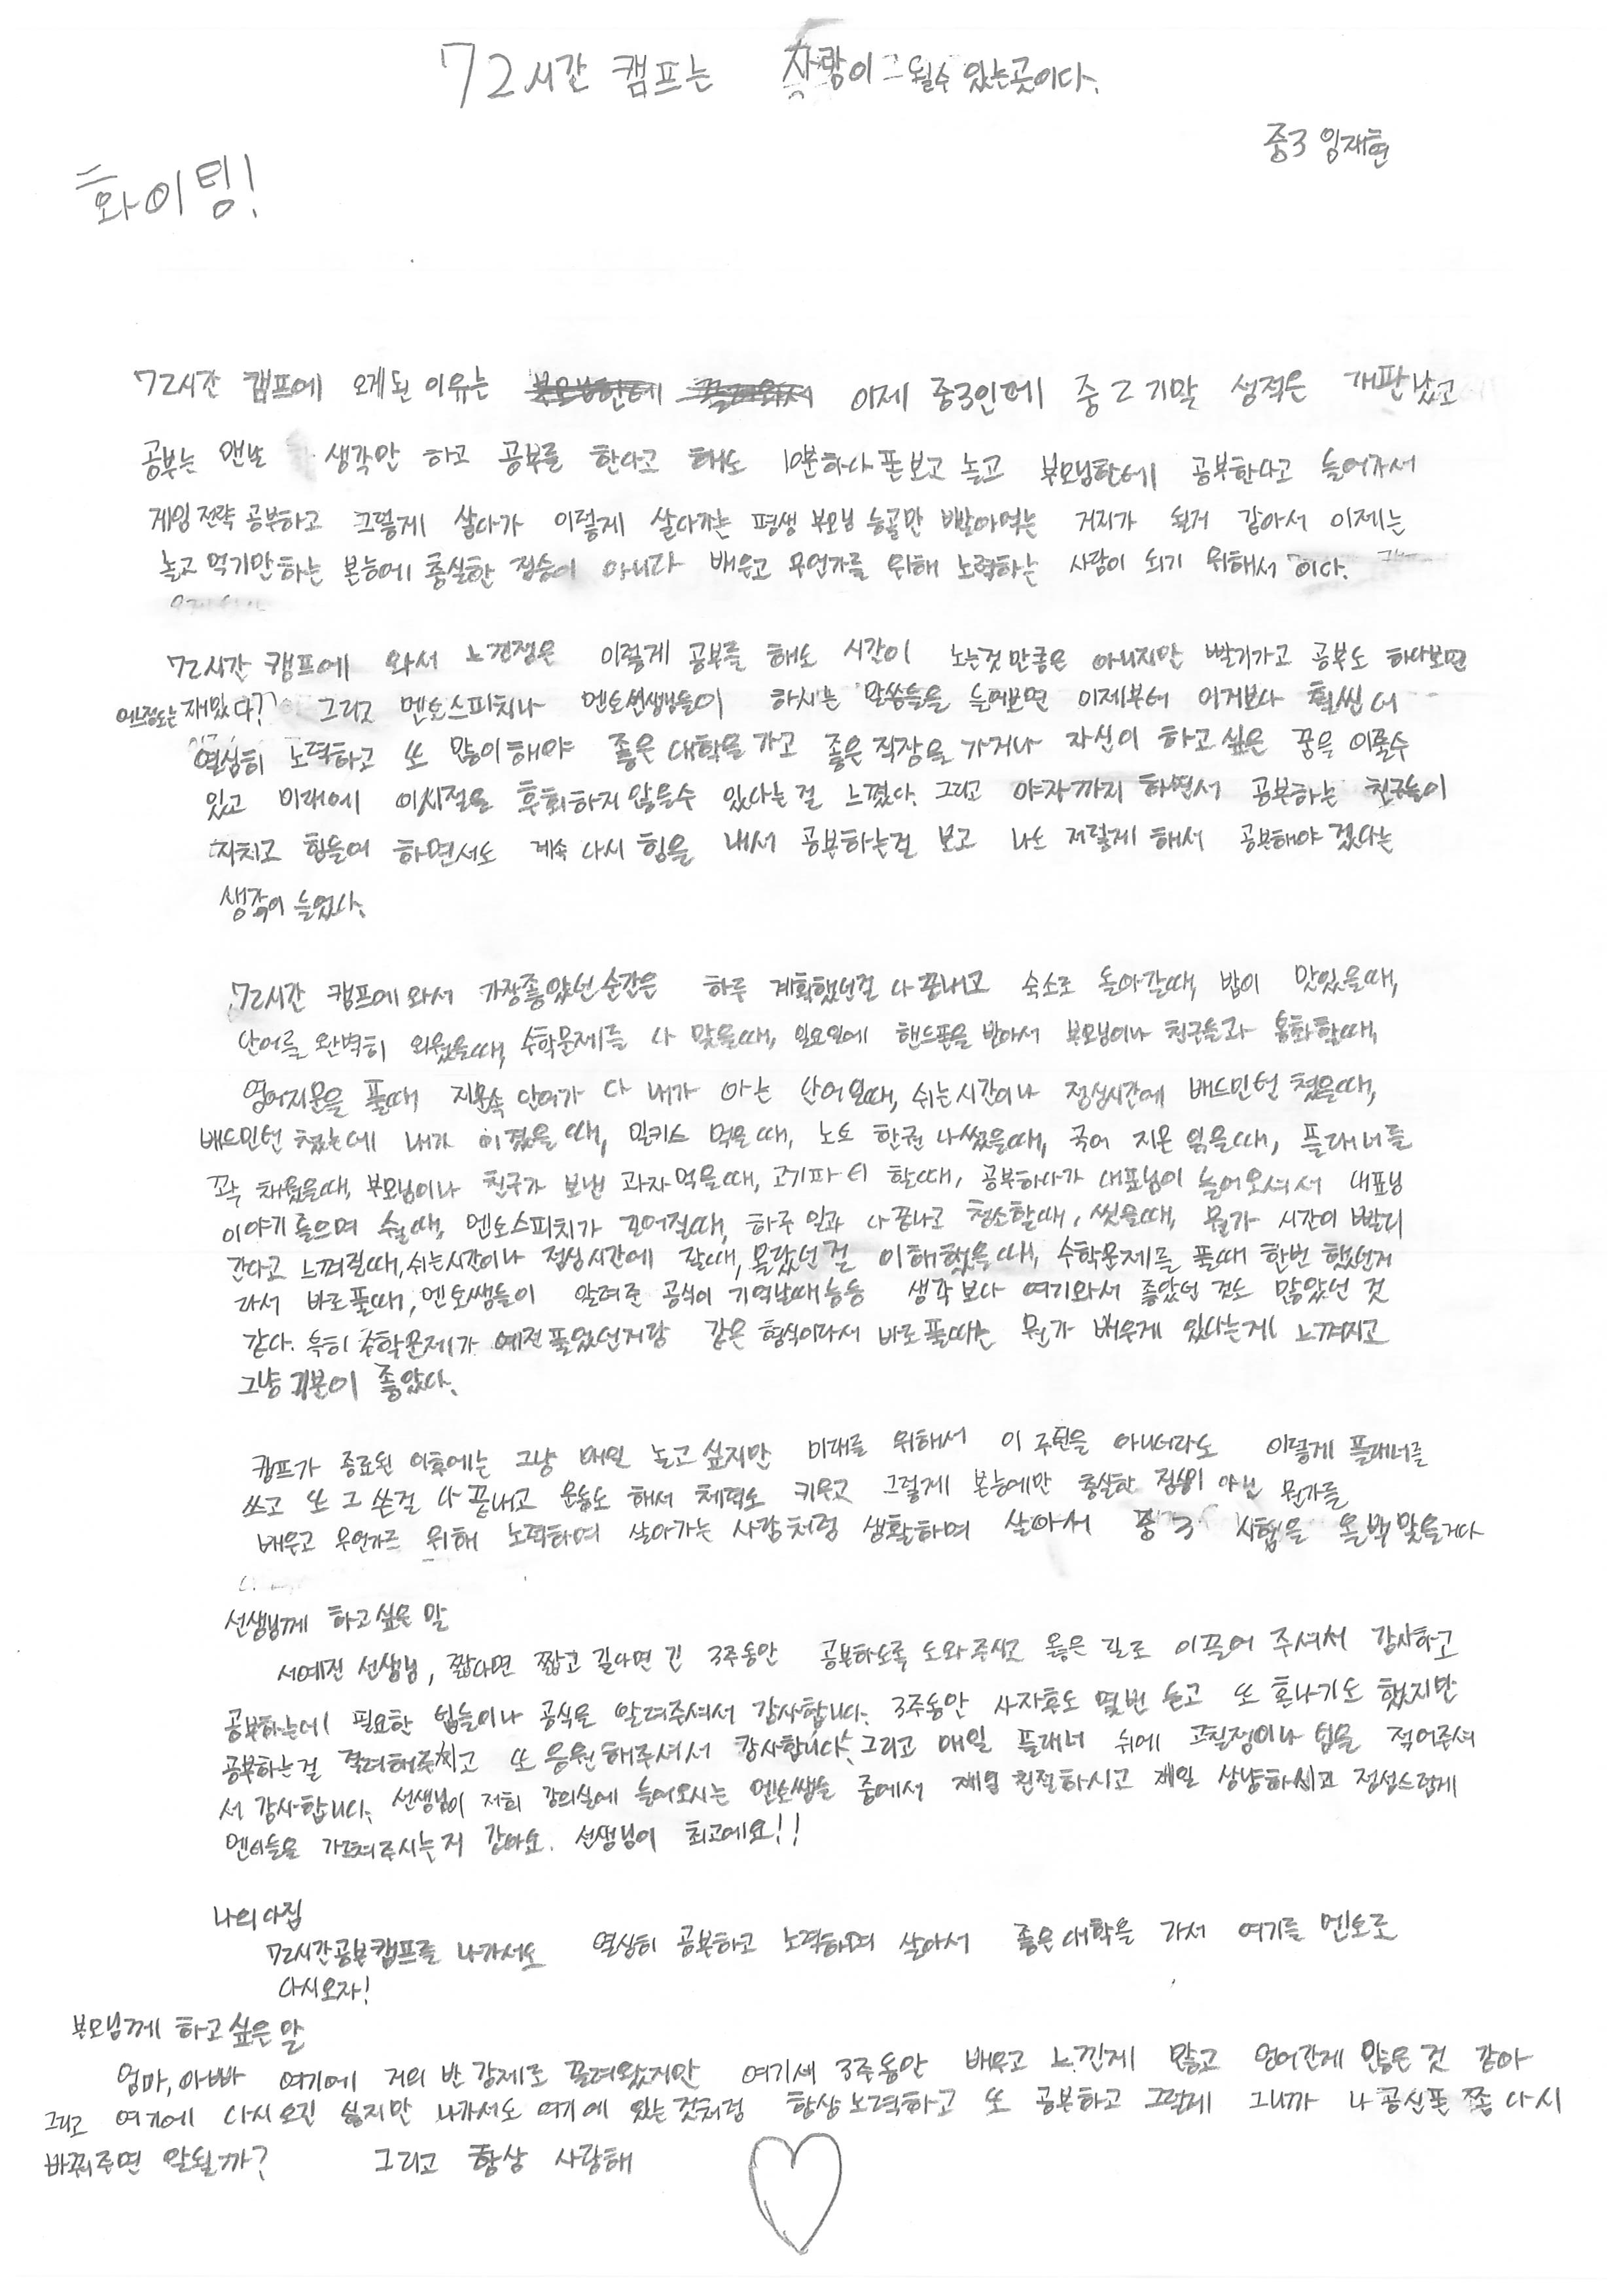 72시간 캠프는 사람이 될수 있는곳이다.
중3 임재현
화이팅!
72시간 캠프에 오게된 이유는 이제 중3인데 중2 기말 성적은 개판났고
공부는 맨날 생각만 하고 공부를 한다고 해도 10분하다 폰보고 놀고 부모님한테 공부한다고 들어가서
게임전략 공부하고 그렇게 살다가 이렇게 살다가는 평생 부모님 등골만 빨아먹는 거지가 될거 같아서 이제는
놀고 먹기만하는 본능에 충실한 짐승이 아니라 배우고 무언가를 위해 노력하는 사람이 되기 위해서 이다.
72시간 캠프에 와서 느낀점은 이렇게 공부를 해도 시간이 노는것 만큼은 아니지만 빨리가고 공부도 하다보면
어느정도는 재밌다?? 그리고 멘토스피치나 멘토선생님들이 하시는 말씀들을 들어보면 이제부터 이거보다 훨씬 더
열심히 노력하고 또 많이해야 좋은 대학을 가고 좋은 직장을 가거나 자신이 하고싶은 꿈을 이룰수
있고 미래에 이시절을 후회하지 않을수 있다는걸 느꼈다. 그리고 야자까지 하면서 공부하는 친구들이
지치고 힘들어 하면서도 계속 다시 힘을 내서 공부하는걸 보고 나도 저렇게 해서 공부해야 겠다는
생각이 들었다.
72시간 캠프에 와서 가장좋았던 순간은 하루 계획했던걸 다 끝내고 숙소로 돌아갈때, 밥이 맛있을때,
단어를 완벽히 외웠을때, 수학문제를 다 맞을때, 일요일에 핸드폰을 받아서 부모님이나 친구들과 통화할때,
영어지문을 풀때 지문속 단어가 다 내가 아는 단어일때, 쉬는시간이나 점심시간에 배드민턴 쳤을때,
배드민턴 쳤는데 내가 이겼을때, 밀키스 먹을때, 노트 한권 다썼을때, 국어 지문 읽을때, 플래너를
꽉 채웠을때, 부모님이나 친구가 보낸 과자먹을때, 고기파티 할때, 공부하다가 대표님이 들어오셔서 대표님
이야기 들으며 쉴때, 멘토스피치가 길어질때, 하루 일과 다 끝나고 청소할때, 씻을때, 뭔가 시간이 빨리
간다고 느껴질때, 쉬는시간이나 점심시간에 잘때, 몰랐던걸 이해했을때, 수학문제를 풀때 한번 했던거
라서 바로풀때, 멘토쌤들이 알려준 공식이 기억날때 등등 생각보다 여기와서 좋았던 것도 많았던 것
같다. 특히 수학문제가 예전 풀었던거랑 같은 형식이라서 바로풀때는 뭔가 배운게 있다는게 느껴지고
그냥 기분이 좋았다.
캠프가 종료된 이후에는 그냥 매일 놀고싶지만 미래를 위해서 이 주턴을 아니더라도 이렇게 플래너를
쓰고 또 그 쓴걸 다 끝내고 운동도 해서 체력도 키우고 그렇게 본능에만 충실한 짐승이 아닌 뭔가를
배우고 무언가를 위해 노력하며 살아가는 사람처럼 생활하며 살아서 중3 시험을 올백맞을거다
선생님께 하고싶은 말
서예진 선생님, 짧다면 짧고 길다면 긴 3주동안 공부하도록 도와주시고 옳은 길로 이끌어 주셔서 감사하고
공부하는데 필요한 팁들이나 공식을 알려주셔서 감사합니다. 3주동안 사자후도 몇번 듣고 또 혼나기도 했지만
공부하는걸 격려해주시고 또 응원해주셔서 감사합니다. 그리고 매일 플래너 뒤에 고칠점이나 팁을 적어주셔
서 감사합니다. 선생님이 저희 강의실에 들어오시는 멘토쌤들 중에서 제일 친절하시고 제일 상냥하세고 정성스럽게
멘티들을 가르쳐주시는거 같아요. 선생님이 최고에요!!
나의 다짐
72시간공부캠프를 나가서도 열심히 공부하고 노력하며 살아서 좋은대학을 가서 여기를 멘토로
다시오자!
부모님께 하고싶은말
엄마, 아빠 여기에 거의 반 강제로 끌려왔지만 여기서 3주동안 배우고 느낀게 많고 얻어간게 많은 것 같아
그리고 여기에 다시 오긴 싫지만 나가서도 여기에 있는것처럼 항상 노력하고 또 공부하고 그럴게 그니까 나 공신폰 쫌 다시
바꿔주면 안될까? 그리고 항상 사랑해